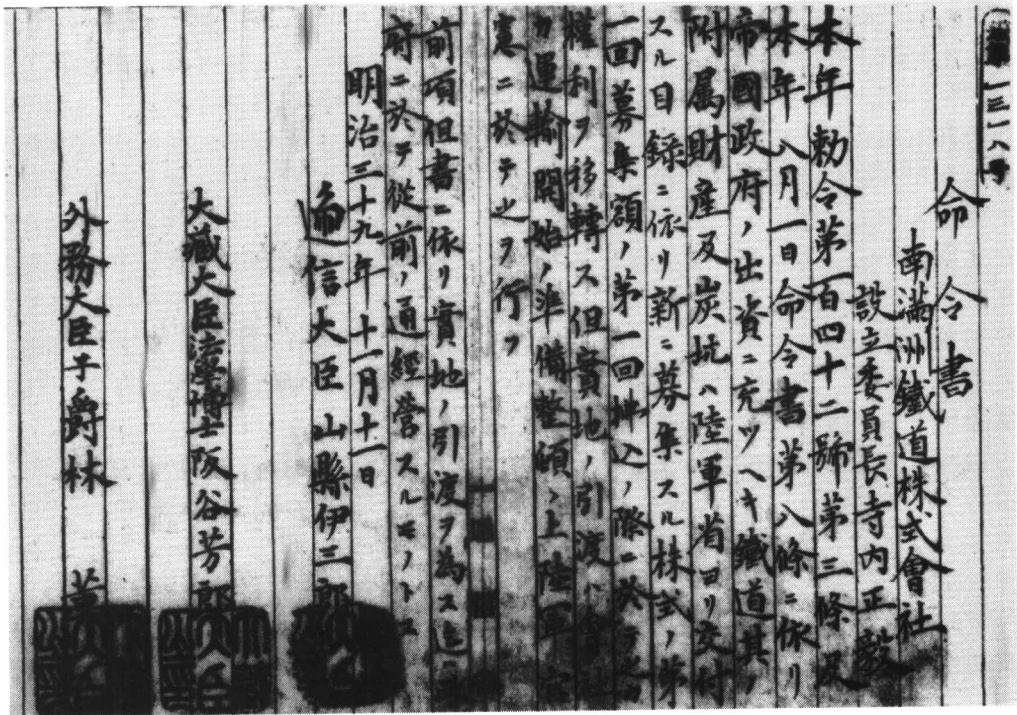 一三一八号
命令書
南滿洲鐵道株式會社
設立委員長寺内正毅
本年勅令第百四十二號第三條及
本年八月一日命令書第八條ニ依リ
帝國政府ノ出資ニ充ツヘキ鐵道其ノ
附属財産及炭坑ハ陸軍省ヨリ交付
スル目録ニ依リ新ニ募集スル株式ノ第
一回募集額ノ第一回拂込ノ際ニ於テ
權利ヲ移轉ス但實地ノ引渡ハ會社
カ運輸開始ノ準備整頓ノ上陸軍官
憲ニ於テ之ヲ行フ
前項但書ニ依リ實地ノ引渡ヲ為ス迄ハ
府ニ於テ從前ノ通經營スルモノトス
明治三十九年十一月十一日
遞信大臣 山縣伊三郎
大藏大臣法學博士阪谷芳郎
外務大臣子爵林 董